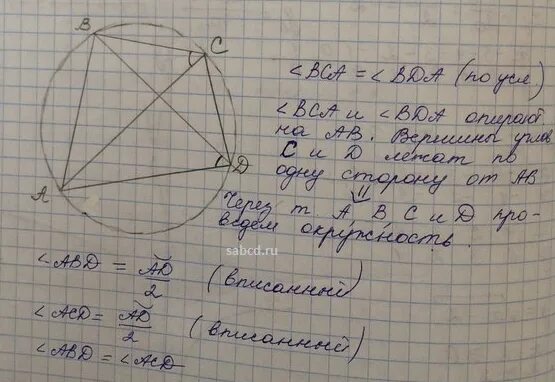 B
C
∠BCA = ∠BDA (по усл)
∠BCA и ∠BDA опирают
на AB. Вершины углов
C и D лежат по
D
одну сторону от AB
⇓
A
Через т. A, B, C и D про-
ведем окружность.
sabcd.ru
∠ABD = ᵕAD/2 (вписанный)
∠ACD = ᵕAD/2 (вписанный)
∠ABD = ∠ACD